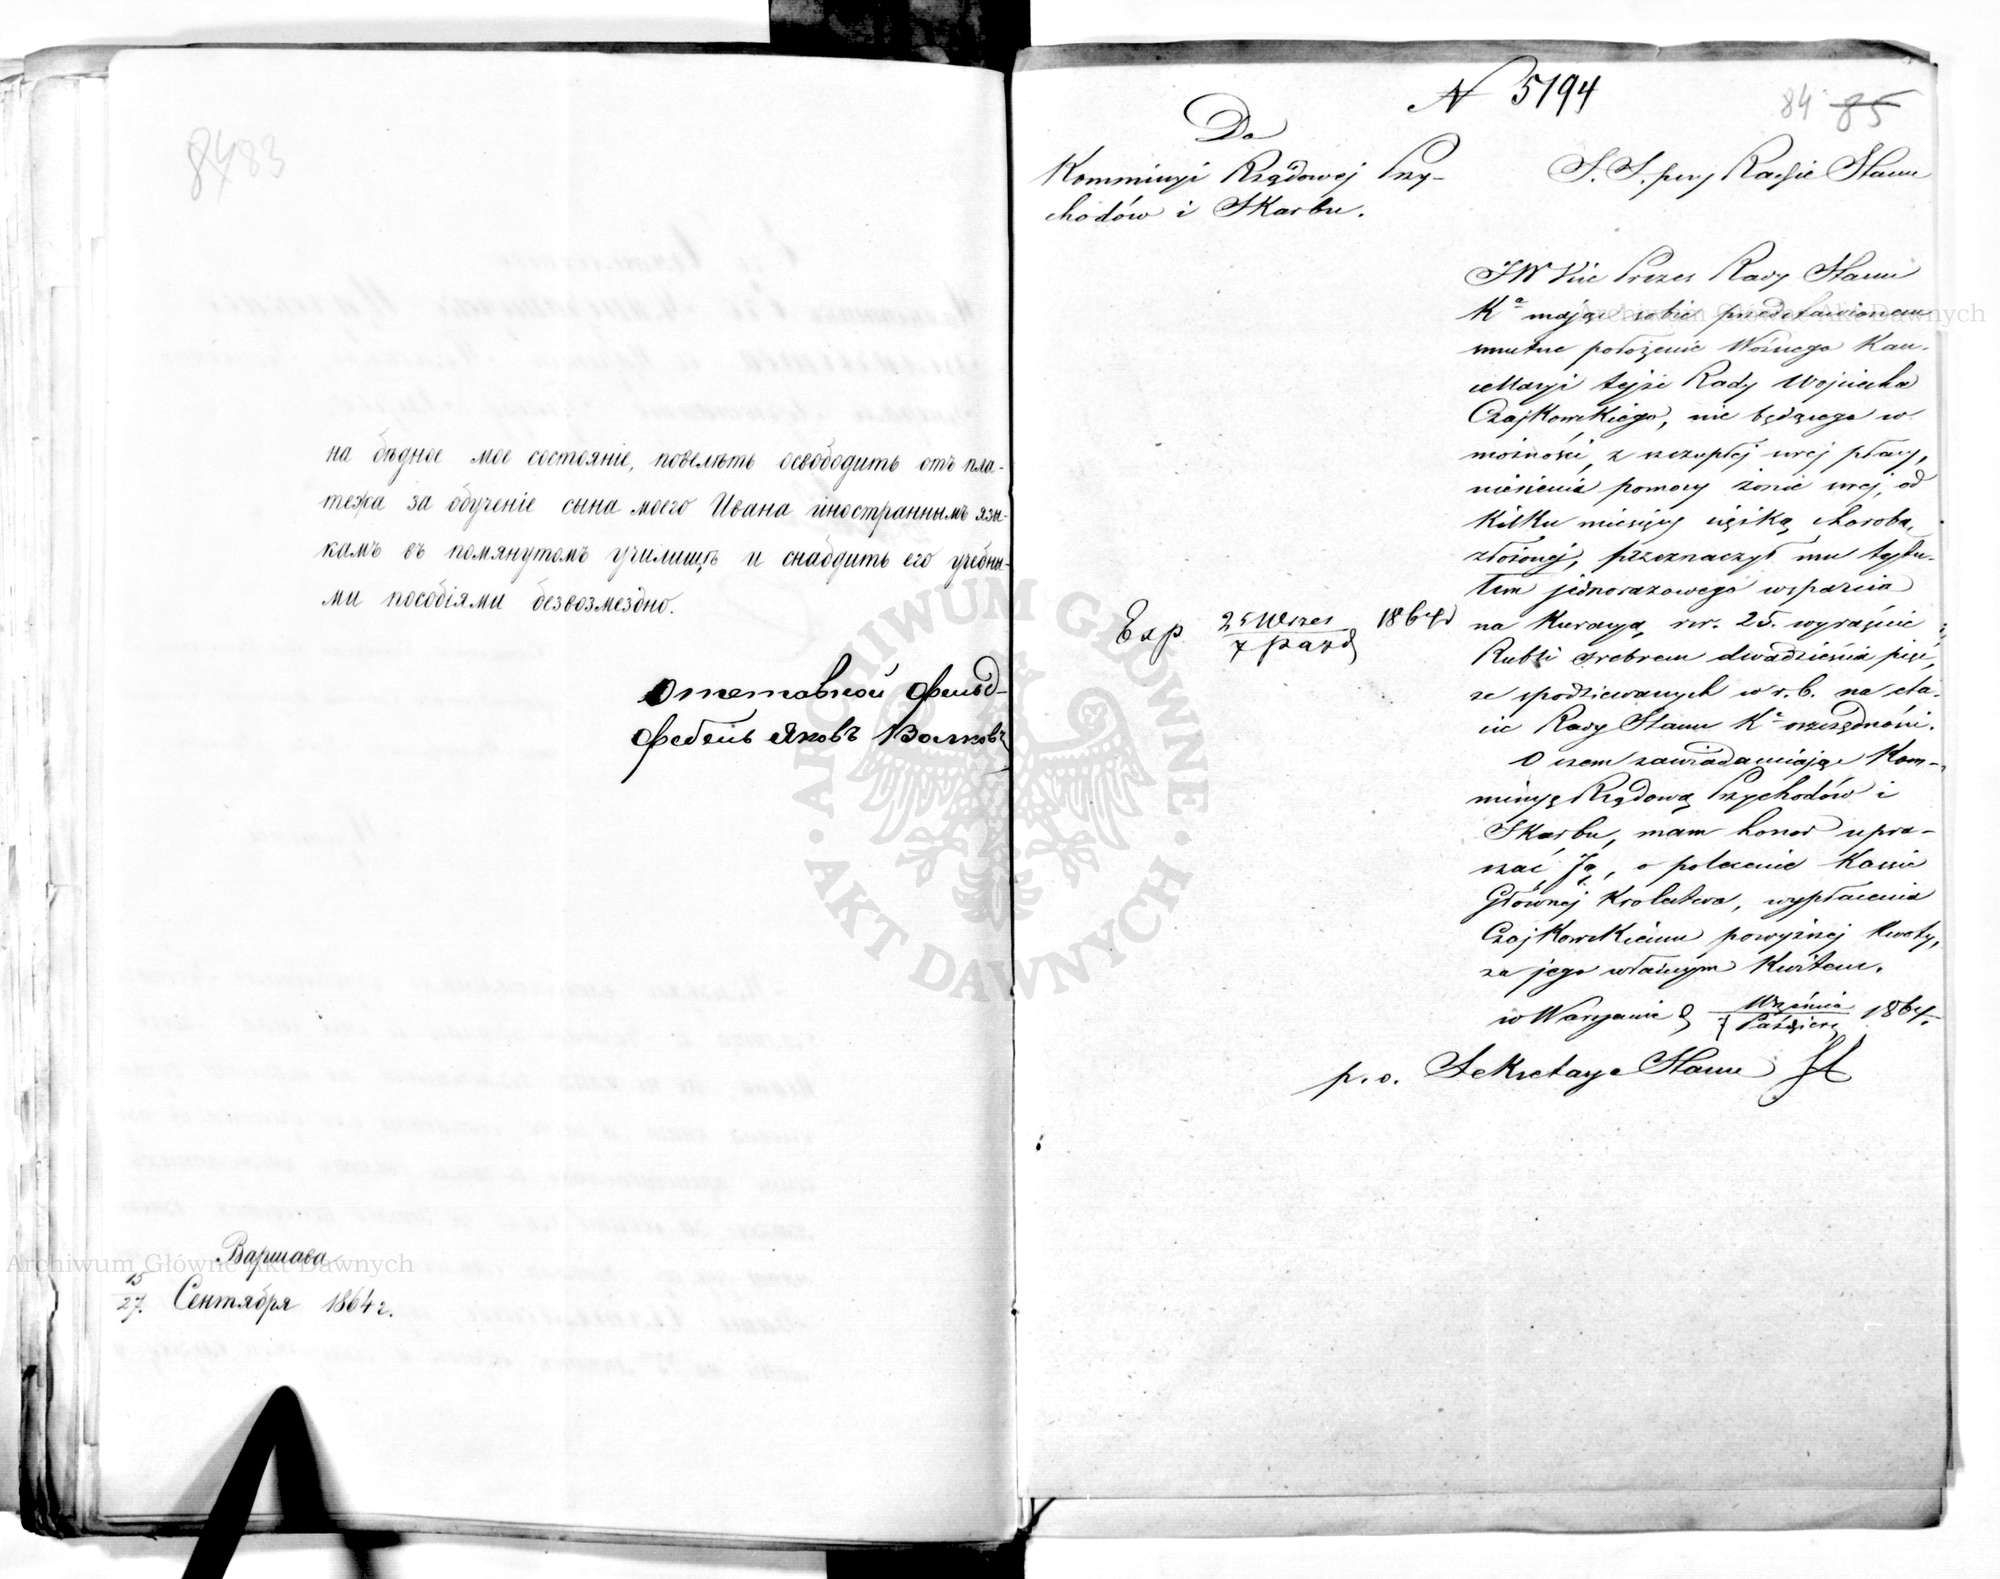 8483
на бѣдное мое состояніе, повелѣть освободить отъ пла-
тежа за обученіе сына моего Ивана иностраннымъ язы-
камъ въ помянутомъ училищѣ и снабдить его учебны-
ми пособіями безвозмездно.
Отставной Фельд-
фебель Яковъ Волковъ
Варшава
15/27. Сентября 1864 г.
N 5194
84 85
Do
Kommissyi Rządowej Przy-
chodów i Skarbu.
S. S. przy Radzie Stanu
JW Vice Prezes Rady Stanu
Kª mając sobie przedstawionem
smutne położenie Woźnego Kan-
cellaryi tejże Rady Wojciecha
Czajkowskiego, nie będącego w
możności, z szczupłej swej płacy,
niesienia pomocy żonie swej, od
kilku miesięcy ciężką chorobą
złożonej, przeznaczył mu tytu-
łem jednorazowego wsparcia
na kuracyą, rsr. 25. wyraźnie
Rubli srebrem dwadzieścia pięć,
ze spodziewanych w r. b. na eta-
cie Rady Stanu Kª oszczędności.
Exp 25 Wrzes / 7 Pazd 1864
O czem zawiadamiając Kom-
missyę Rządową Przychodów i
Skarbu, mam honor upra-
szać Ją, o polecenie Kassie
Głównej Królestwa, wypłacenia
Czajkowskiemu powyższej kwoty,
za jego własnym kwitem.
w Warszawie d Września / 7 Paździer 1864.
p. o. Sekretarza Stanu
ARCHIWUM GŁÓWNE AKT DAWNYCH
Archiwum Główne Akt Dawnych
Archiwum Główne Akt Dawnych